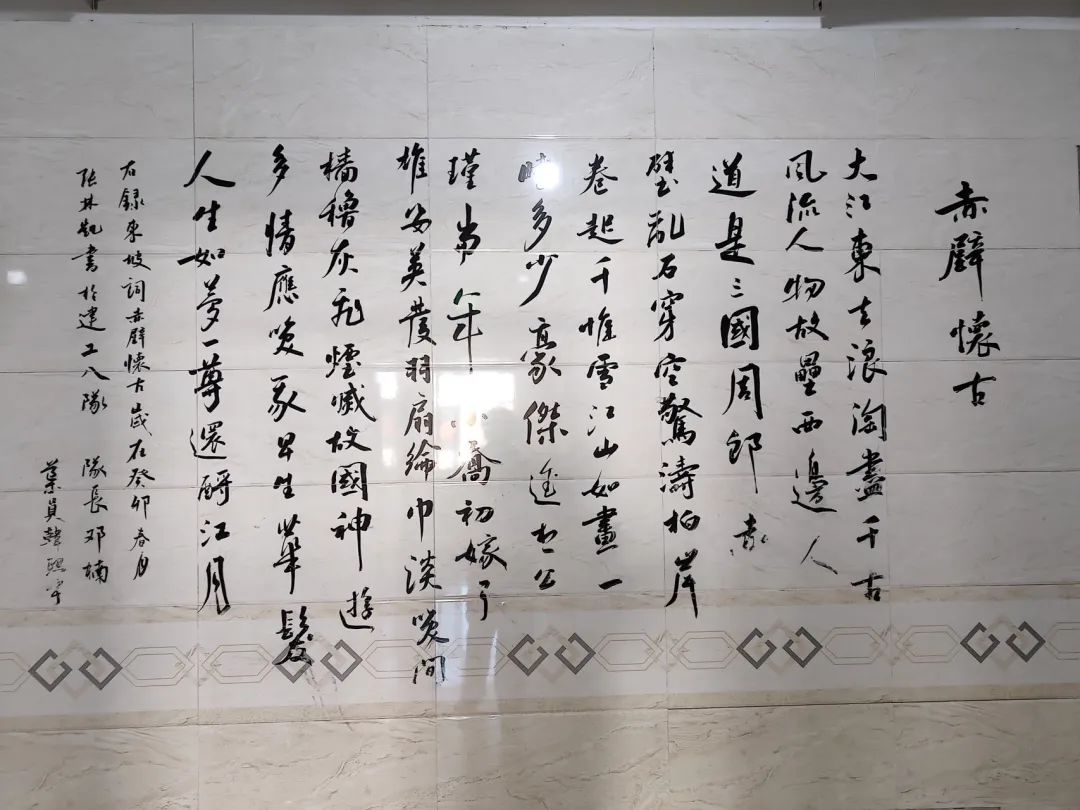 赤壁懷古
大江東去浪淘盡千古
風流人物故壘西邊人
道是三國周郎赤
壁亂石穿空驚濤拍岸
卷起千堆雪江山如畫一
時多少豪傑遙想公
瑾當年小喬初嫁了
雄姿英發羽扇綸巾談笑間
檣櫓灰飛煙滅故國神遊
多情應笑我早生華髮
人生如夢一尊還酹江月
右録東坡詞赤壁懷古歲在癸卯春月
张林凱書於建工八隊 隊長邓楠
員韓熙